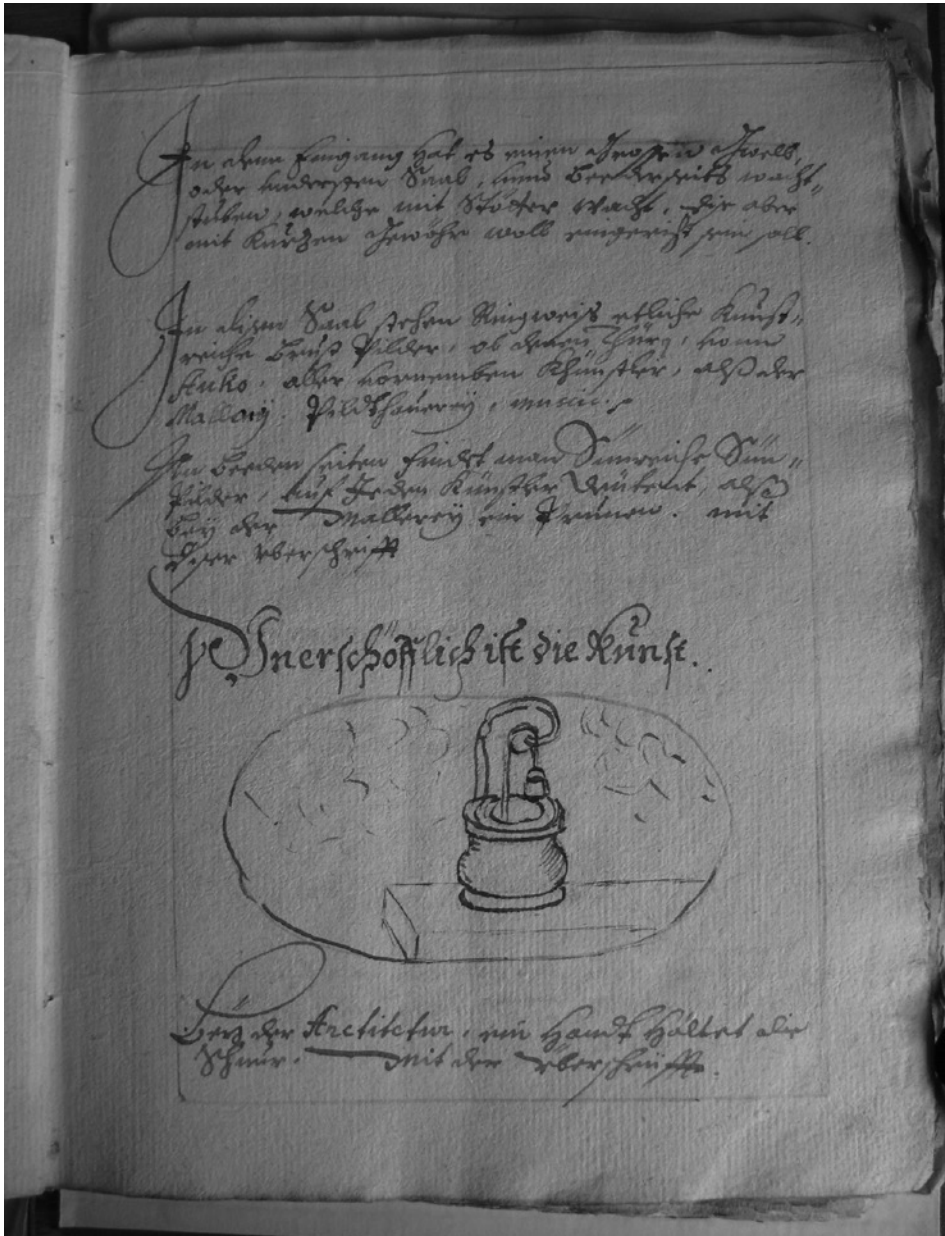 In dem Eingang hat es einen Grossen Gwelb,
oder understen Saal, unnd Beederseits wacht„
stuben, welche mit Statter Wacht, Dir aber
mit Kurzen Gewöhr woll eingericht sein soll.
In disem Saal stehen Ringweiß etliche Kunst„
reiche Brust Pilder, ob denen Thürn, vonn
Stuko, aller vornemben Khünstler, alß der
Mallereÿ. Pildthauereÿ,
An beeden seiten findt man Sinnreiche Sün„
Pilder, Auf Jeden Künstler Deütent, alß
beÿ der Mallereÿ ein Prunen. mit
diser überschrifft
Unerschöfflich ist die Kunst.
Beÿ der Arctitetur, ein Handt Haltet die
Schnur. Mit der Überschrüfft.